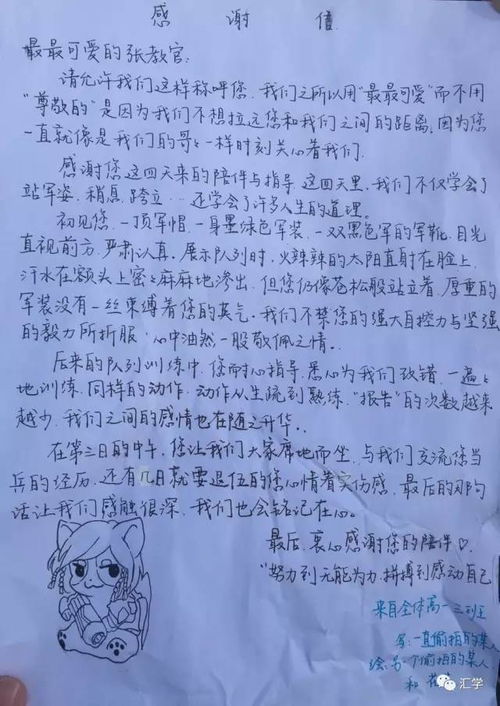 感谢信
最最可爱的张教官:
请允许我们这样称呼您,我们之所以用“最最可爱”而不用
“尊敬的”是因为我们不想拉远您和我们之间的距离,因为您
一直就像是我们的哥哥一样时刻关心着我们。
感谢您这四天来的陪伴与指导,这四天里,我们不仅学会了
站军姿,稍息,跨立……还学会了许多人生的道理。
初见您,一顶军帽,一身墨绿色军装,一双黑色军的军靴,目光
直视前方,严肃认真,展示队列时,火辣辣的太阳直射在脸上,
汗水在额头上密密麻麻地渗出,但您仍像苍松般站立着,厚重的
军装没有一丝束缚着您的英气。我们不禁您的强大自控力与坚强
的毅力所折服,心中油然一股敬佩之情。
后来的队列训练中,您耐心指导,悉心为我们改错,一遍遍
地训练,同样的动作,动作从生疏到熟练,“报告”的次数越来
越少,我们之间的感情也在随之升华。
在第三日的中午,您让我们大家席地而坐,与我们交流您当
兵的经历,还有几日就要退伍的您心情着实伤感,最后的那句
话让我们感触很深,我们也会铭记在心。
最后,衷心感谢您的陪伴♡.
“努力到无能为力,拼搏到感动自己
来自全体高一三班
写:一直偷拍的某人
绘:另一个偷拍的某人
和
汇学